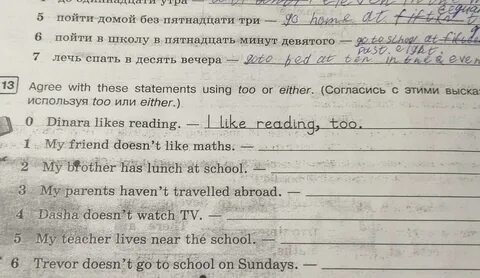 до одиннадцати утра —
5 пойти домой без пятнадцати три — go home at
6 пойти в школу в пятнадцать минут девятого — go to school at
past eight.
7 лечь спать в десять вечера — go to bed at ten in the
13 Agree with these statements using too or either. (Согласись с этими выска
используя too или either.)
0 Dinara likes reading. — I like reading, too.
1 My friend doesn't like maths. —
2 My brother has lunch at school. —
3 My parents haven't travelled abroad. —
4 Dasha doesn't watch TV. —
5 My teacher lives near the school. —
6 Trevor doesn't go to school on Sundays. —